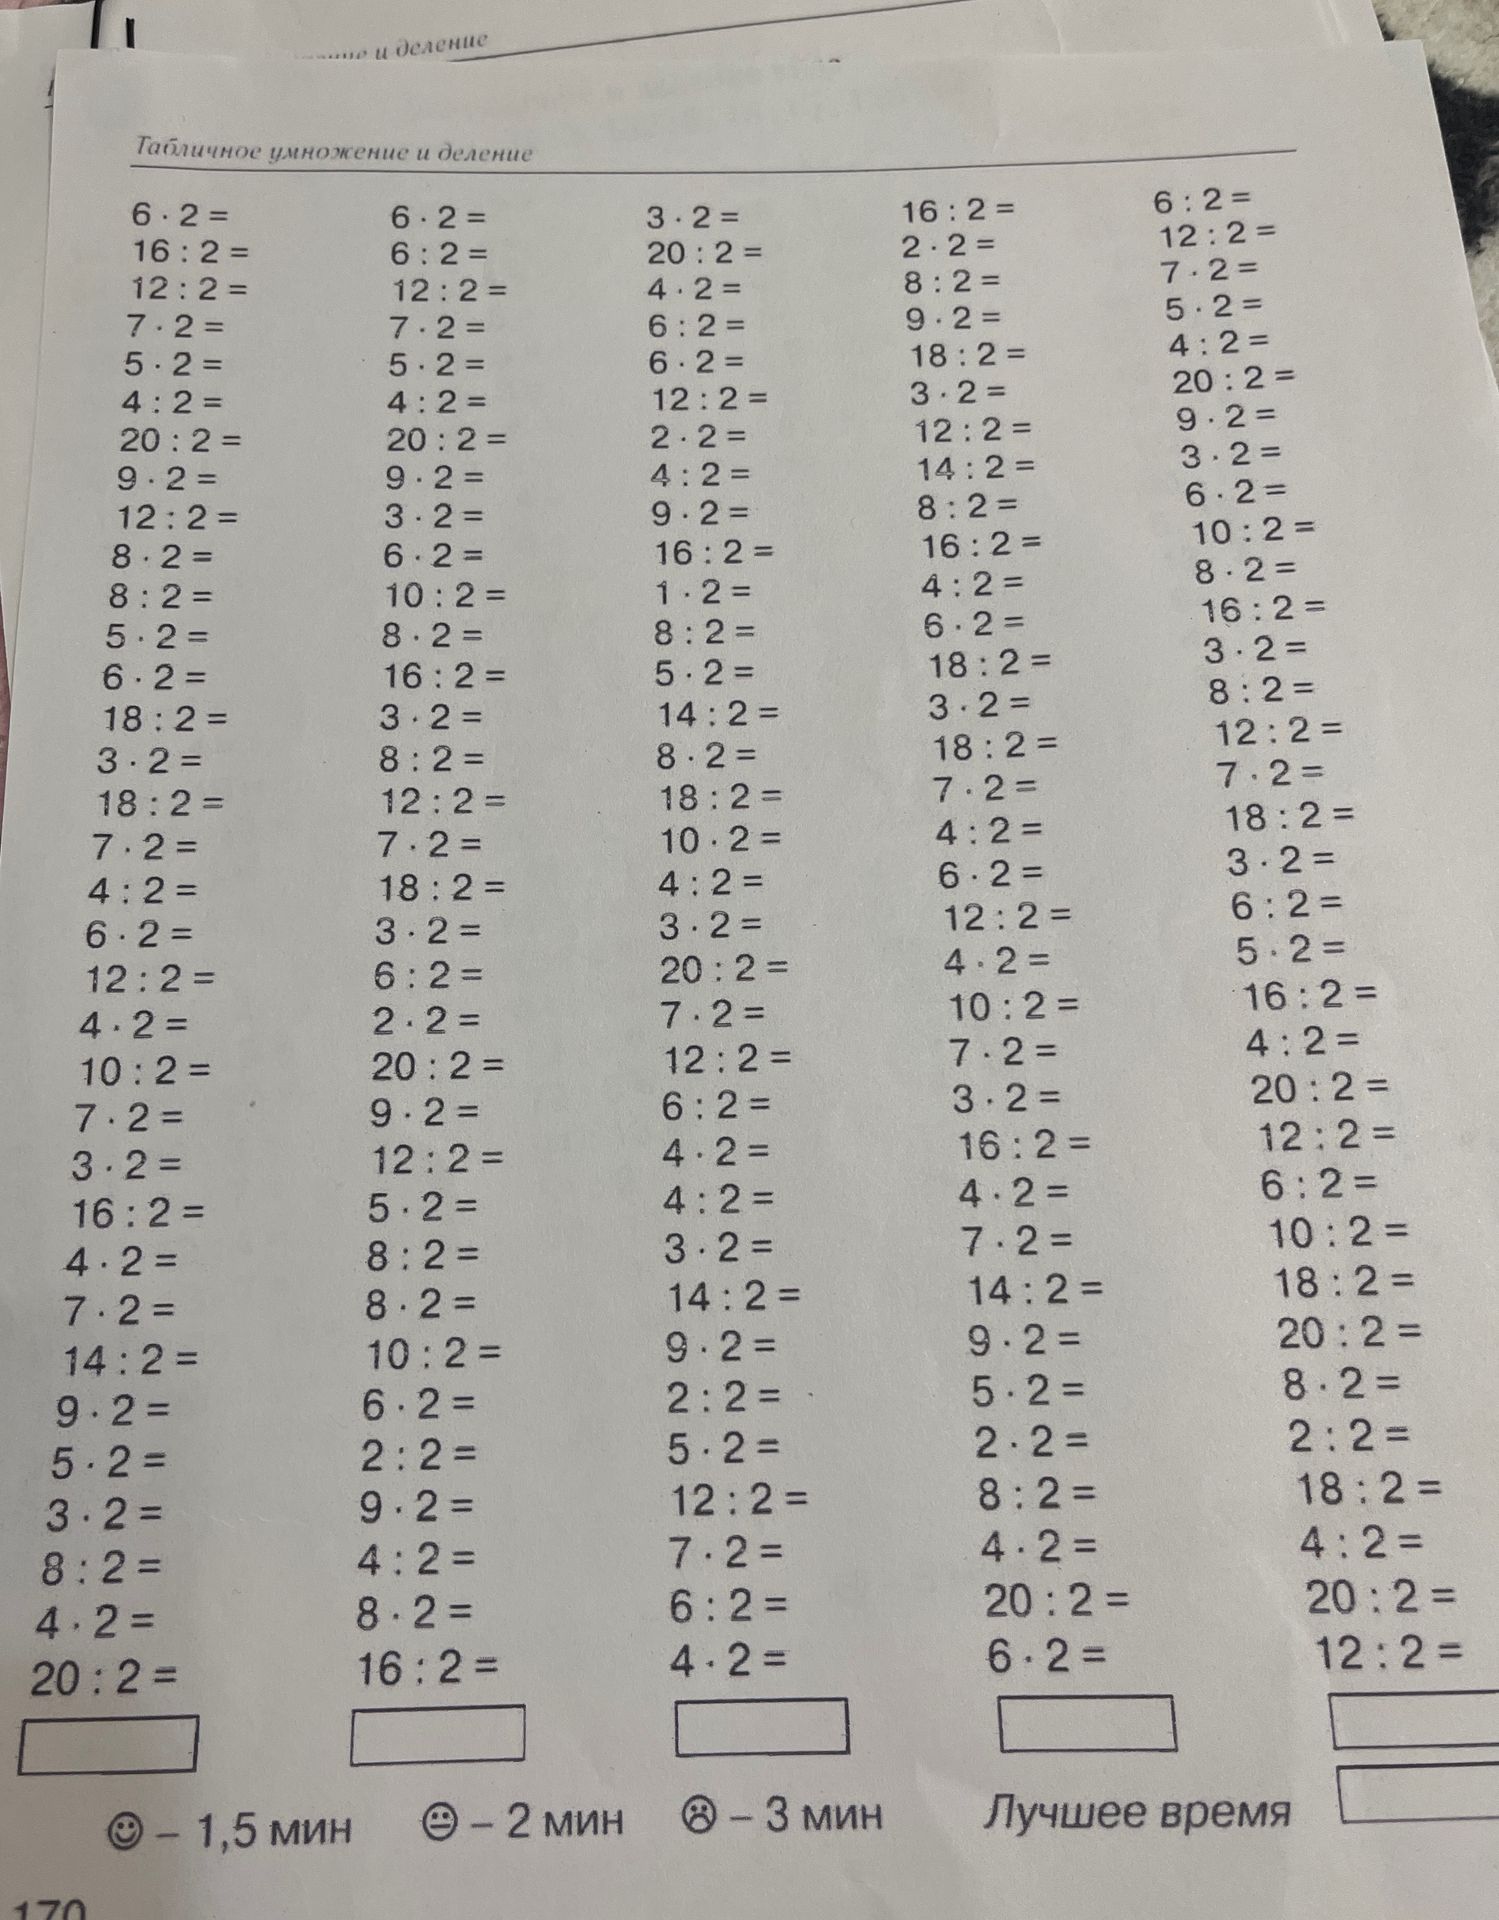 и деление
Табличное умножение и деление
6 · 2 =
16 : 2 =
12 : 2 =
7 · 2 =
5 · 2 =
4 : 2 =
20 : 2 =
9 · 2 =
12 : 2 =
8 · 2 =
8 : 2 =
5 · 2 =
6 · 2 =
18 : 2 =
3 · 2 =
18 : 2 =
7 · 2 =
4 : 2 =
6 · 2 =
12 : 2 =
4 · 2 =
10 : 2 =
7 · 2 =
3 · 2 =
16 : 2 =
4 · 2 =
7 · 2 =
14 : 2 =
9 · 2 =
5 · 2 =
3 · 2 =
8 : 2 =
4 · 2 =
20 : 2 =
6 · 2 =
6 : 2 =
12 : 2 =
7 · 2 =
5 · 2 =
4 : 2 =
20 : 2 =
9 · 2 =
3 · 2 =
6 · 2 =
10 : 2 =
8 · 2 =
16 : 2 =
3 · 2 =
8 : 2 =
12 : 2 =
7 · 2 =
18 : 2 =
3 · 2 =
6 : 2 =
2 · 2 =
20 : 2 =
9 · 2 =
12 : 2 =
5 · 2 =
8 : 2 =
8 · 2 =
10 : 2 =
6 · 2 =
2 : 2 =
9 · 2 =
4 : 2 =
8 · 2 =
16 : 2 =
3 · 2 =
20 : 2 =
4 · 2 =
6 : 2 =
6 · 2 =
12 : 2 =
2 · 2 =
4 : 2 =
9 · 2 =
16 : 2 =
1 · 2 =
8 : 2 =
5 · 2 =
14 : 2 =
8 · 2 =
18 : 2 =
10 · 2 =
4 : 2 =
3 · 2 =
20 : 2 =
7 · 2 =
12 : 2 =
6 : 2 =
4 · 2 =
4 : 2 =
3 · 2 =
14 : 2 =
9 · 2 =
2 : 2 =
5 · 2 =
12 : 2 =
7 · 2 =
6 : 2 =
4 · 2 =
16 : 2 =
2 · 2 =
8 : 2 =
9 · 2 =
18 : 2 =
3 · 2 =
12 : 2 =
14 : 2 =
8 : 2 =
16 : 2 =
4 : 2 =
6 · 2 =
18 : 2 =
3 · 2 =
18 : 2 =
7 · 2 =
4 : 2 =
6 · 2 =
12 : 2 =
4 · 2 =
10 : 2 =
7 · 2 =
3 · 2 =
16 : 2 =
4 · 2 =
7 · 2 =
14 : 2 =
9 · 2 =
5 · 2 =
2 · 2 =
8 : 2 =
4 · 2 =
20 : 2 =
6 · 2 =
6 : 2 =
12 : 2 =
7 · 2 =
5 · 2 =
4 : 2 =
20 : 2 =
9 · 2 =
3 · 2 =
6 · 2 =
10 : 2 =
8 · 2 =
16 : 2 =
3 · 2 =
8 : 2 =
12 : 2 =
7 · 2 =
18 : 2 =
3 · 2 =
6 : 2 =
5 · 2 =
16 : 2 =
4 : 2 =
20 : 2 =
12 : 2 =
6 : 2 =
10 : 2 =
18 : 2 =
20 : 2 =
8 · 2 =
2 : 2 =
18 : 2 =
4 : 2 =
20 : 2 =
12 : 2 =
– 1,5 мин – 2 мин – 3 мин Лучшее время
170